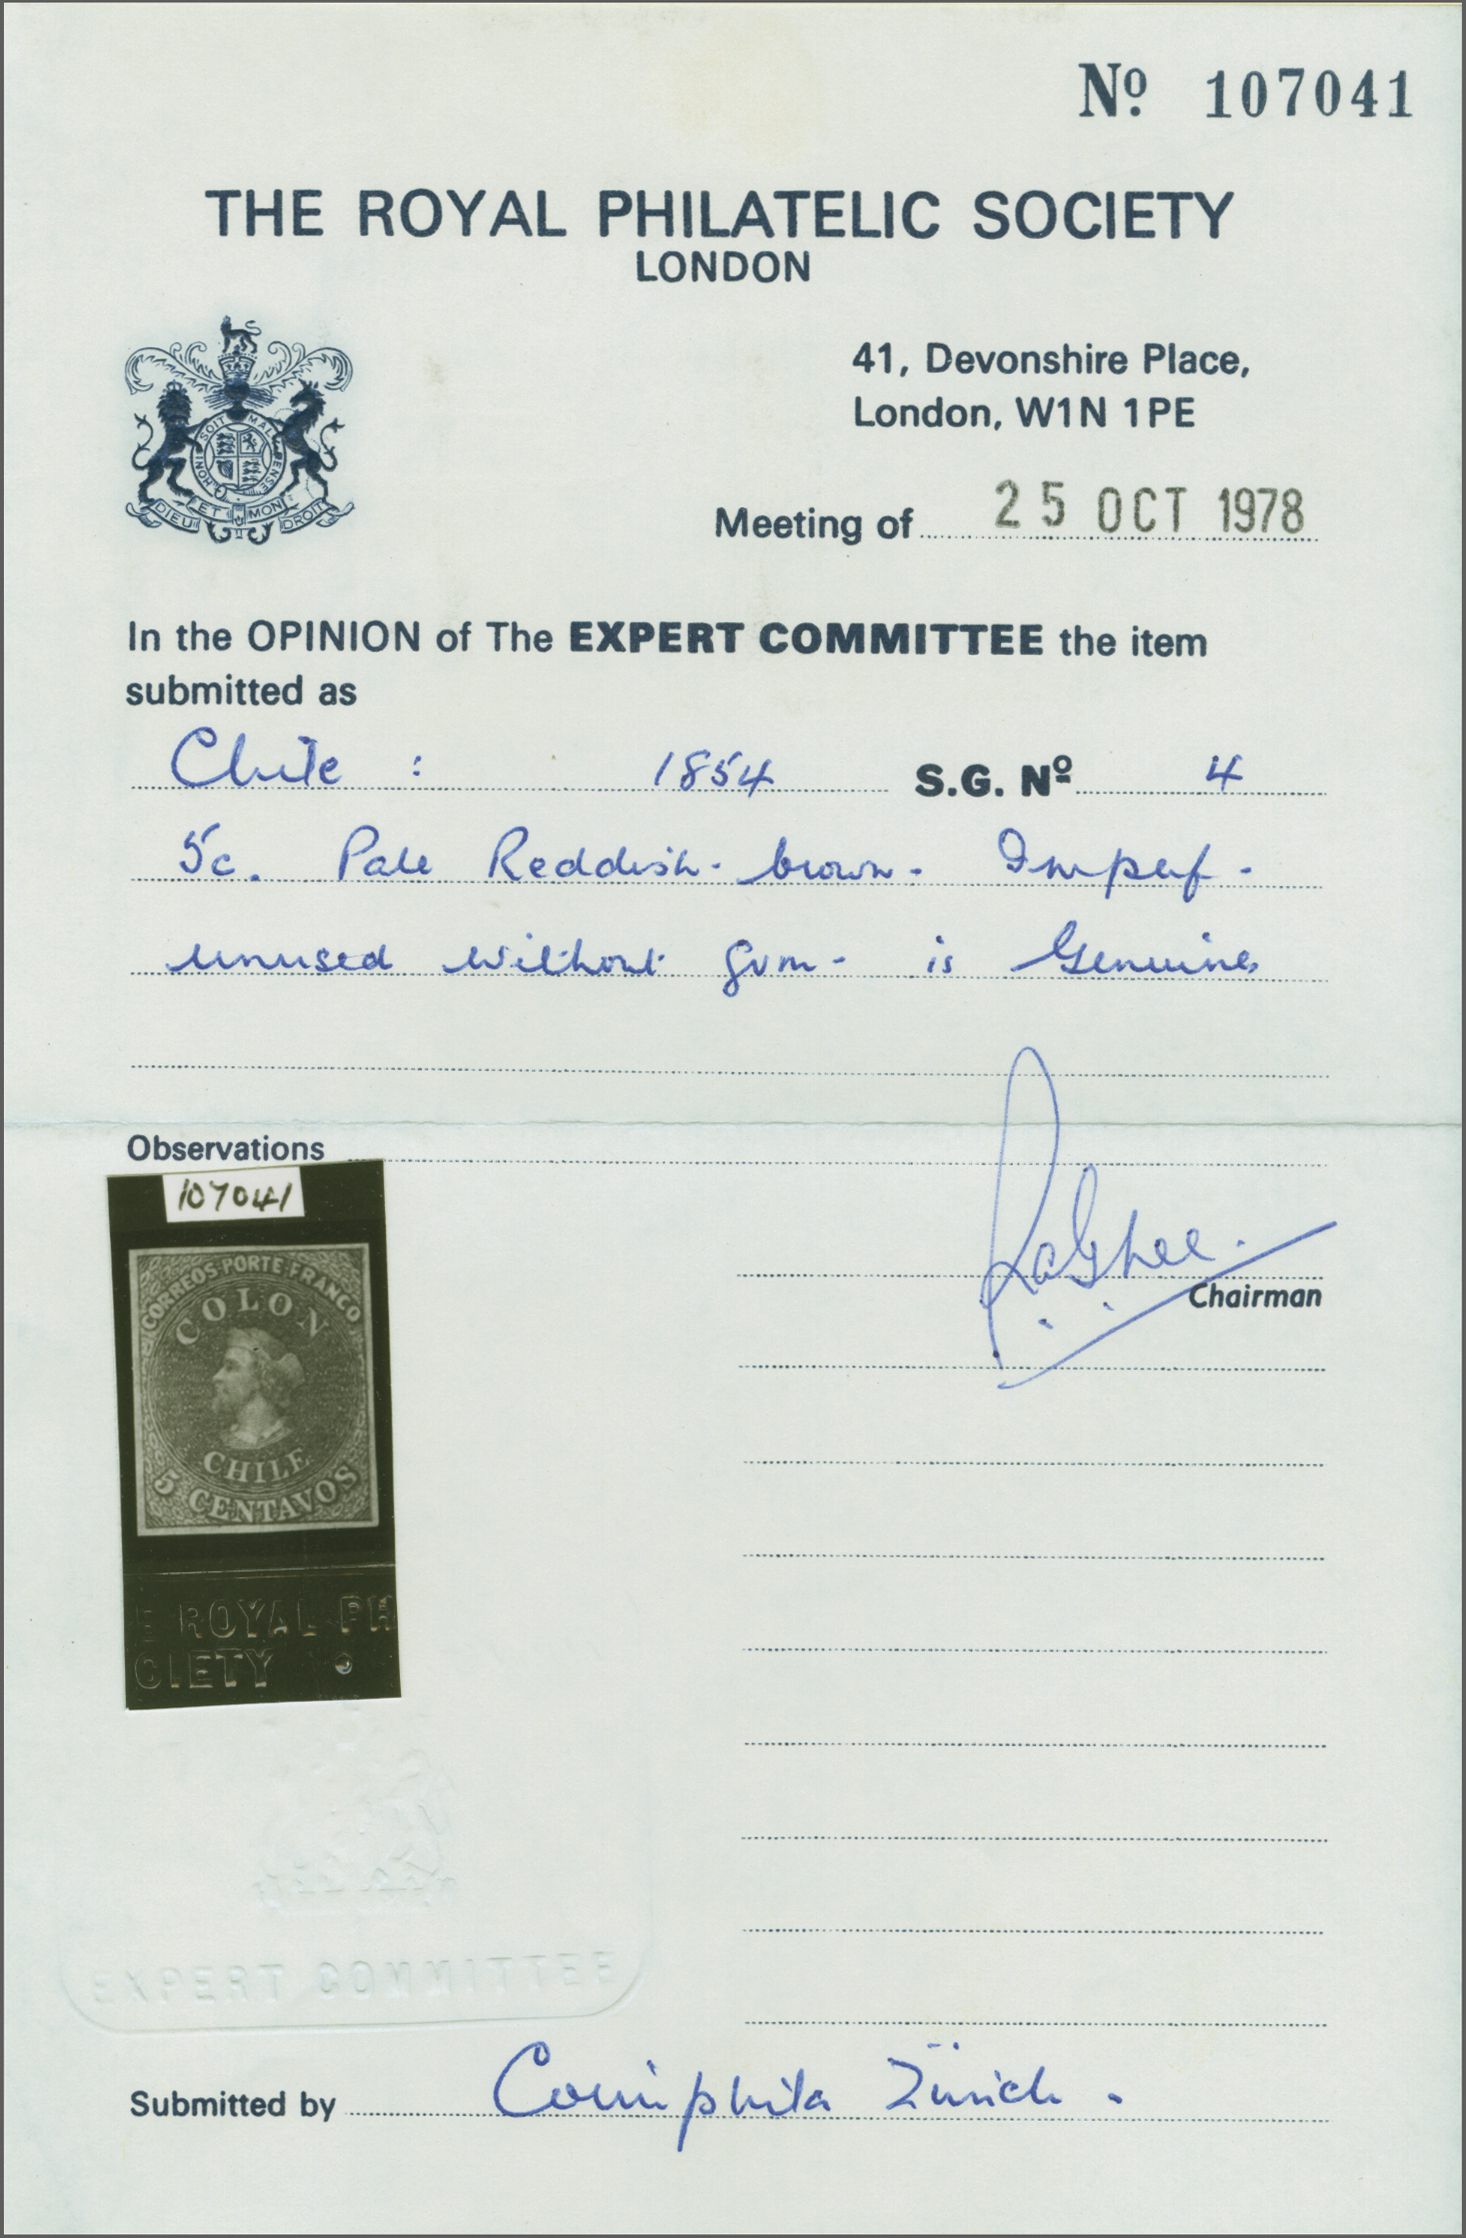 Nº 107041
THE ROYAL PHILATELIC SOCIETY
LONDON
HONI SOIT MAL Y PENSE
DIEU ET MON DROIT
41, Devonshire Place,
London, W1N 1PE
Meeting of 25 OCT 1978
In the OPINION of The EXPERT COMMITTEE the item
submitted as
Chile : 1854 S.G. Nº 4
5c. Pale Reddish-brown. Imperf-
unused without gum- is Genuine
Observations
107041
CORREOS·PORTE·FRANCO
COLON
CHILE
5 CENTAVOS
E ROYAL PH
CIETY
Chairman
EXPERT COMMITTEE
Submitted by Corinphila Zürich.